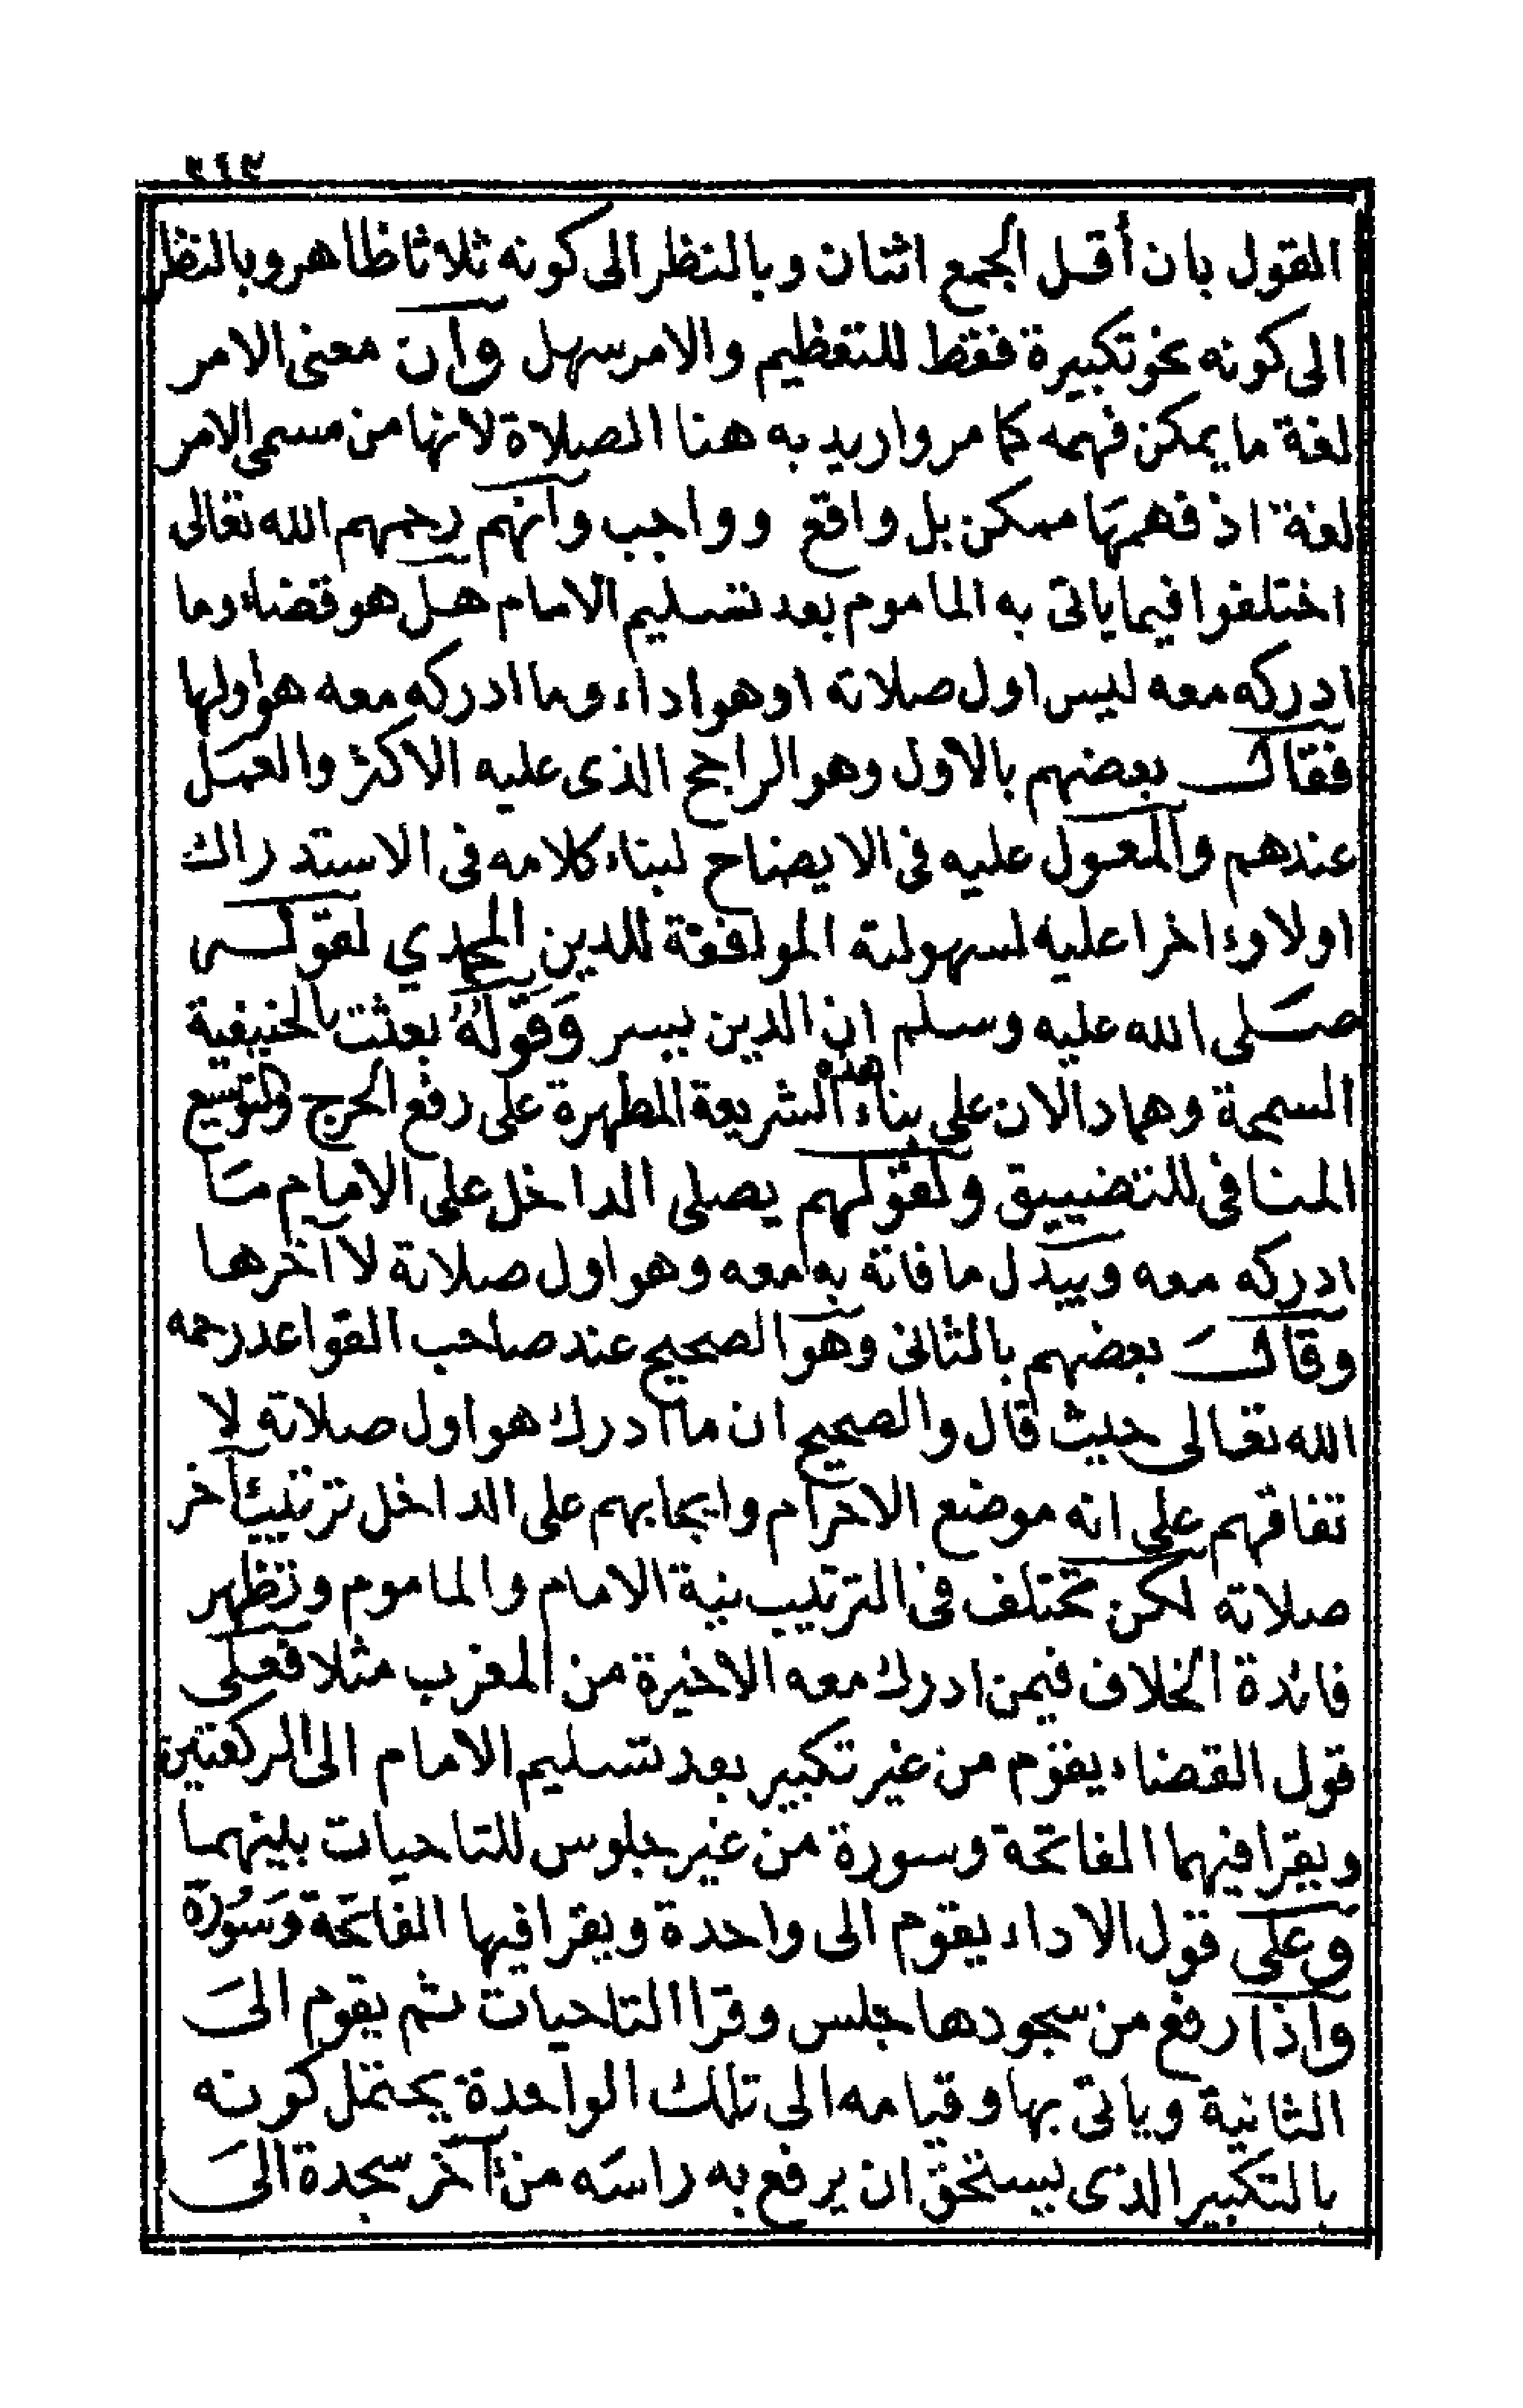 القول بان أقل الجمع اثنان وبالنظر الى كونه ثلاثا ظاهر وبالنظر
الى كونه نحو تكبيرة فقط للتعظيم والامر سهل وان معنى الامر
لغة ما يمكن فهمه كما مر واريد به هنا الصلاة لانها من مسمى الامر
لغة اذ فهمها ممكن بل واقع وواجب وانهم رحمهم الله تعالى
اختلفوا فيما ياتى به الماموم بعد تسليم الامام هل هو قضاء وما
ادركه معه ليس اول صلاته او هو اداء وما ادركه معه هو اولها
فقال بعضهم بالاول وهو الراجح الذى عليه الاكثر والعمل
عندهم والمعول عليه فى الايضاح لبناء كلامه فى الاستدراك
اولا وءاخرا عليه لسهولته الموافقة للدين المحمدي لقوله
صلى الله عليه وسلم ان الدين يسر وقوله بعثت بالحنيفية
السمحة وهما دالان على بناء هذه الشريعة المطهرة على رفع الحرج والتوسيع
المنافى للتضييق ولقولهم يصلى الداخل على الامام ما
ادركه معه ويبدل ما فاته به معه وهو اول صلاته لا آخرها
وقال بعضهم بالثانى وهو الصحيح عند صاحب القواعد رحمه
الله تعالى حيث قال والصحيح ان ما ادرك هو اول صلاته لا
تفاقهم على انه موضع الاحرام وايجابهم على الداخل ترتيب آخر
صلاته لكن تختلف فى الترتيب نية الامام والماموم وتظهر
فائدة الخلاف فيمن ادرك معه الاخيرة من المغرب مثلا فعلى
قول القضاء يقوم من غير تكبير بعد تسليم الامام الى الركعتين
ويقرا فيهما الفاتحة وسورة من غير جلوس للتاحيات بينهما
وعلى قول الاداء يقوم الى واحدة ويقرا فيها الفاتحة وسورة
واذا رفع من سجودها جلس وقرا التاحيات ثم يقوم الى
الثانية وياتى بها وقيامه الى تلك الواحدة يحتمل كونه
بالتكبير الذى يستحق ان يرفع به راسه من ءاخر سجدة الى